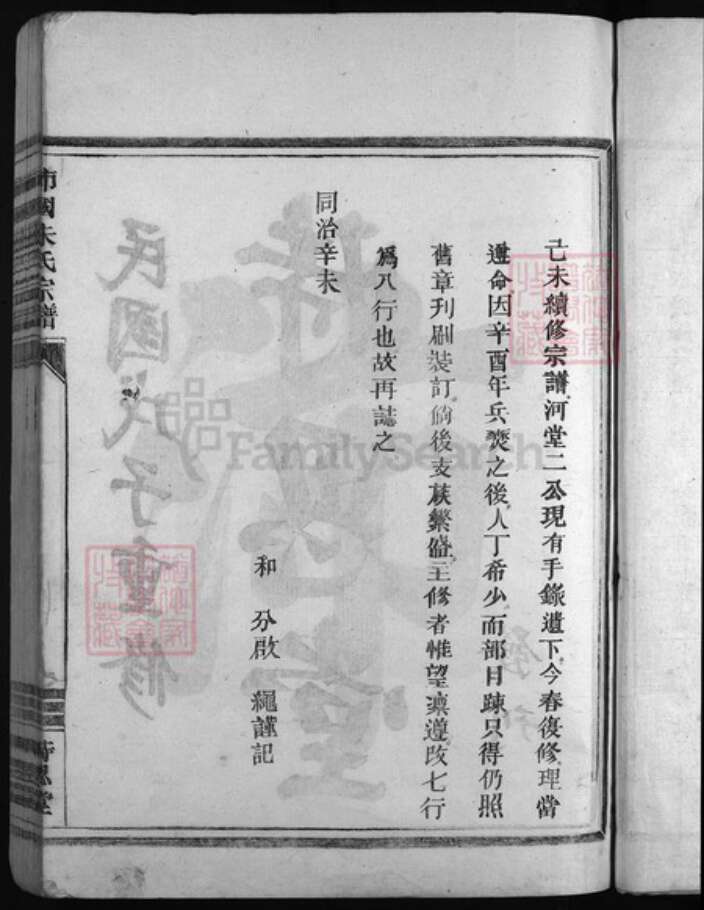 己未續修宗譜河堂二公現有手錄遺下今春復修理當
遵命因辛酉年兵燹之後人丁希少而部目疎只得仍照
舊章刊刷裝訂倘後支蔟繁盛主修者惟望稟遵改七行
爲八行也故再誌之
同治辛未
和 分啟 繩謹記
民國戊子重修
朱氏宗譜
FamilySearch